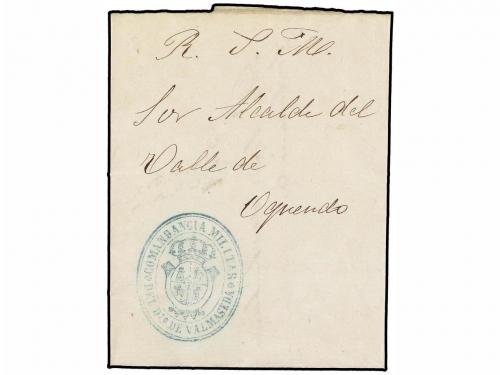 R. S. M.
Sor Alcalde del
Valle de
Oquendo
COMANDANCIA MILITAR
DEL Dto DE VALMASEDA